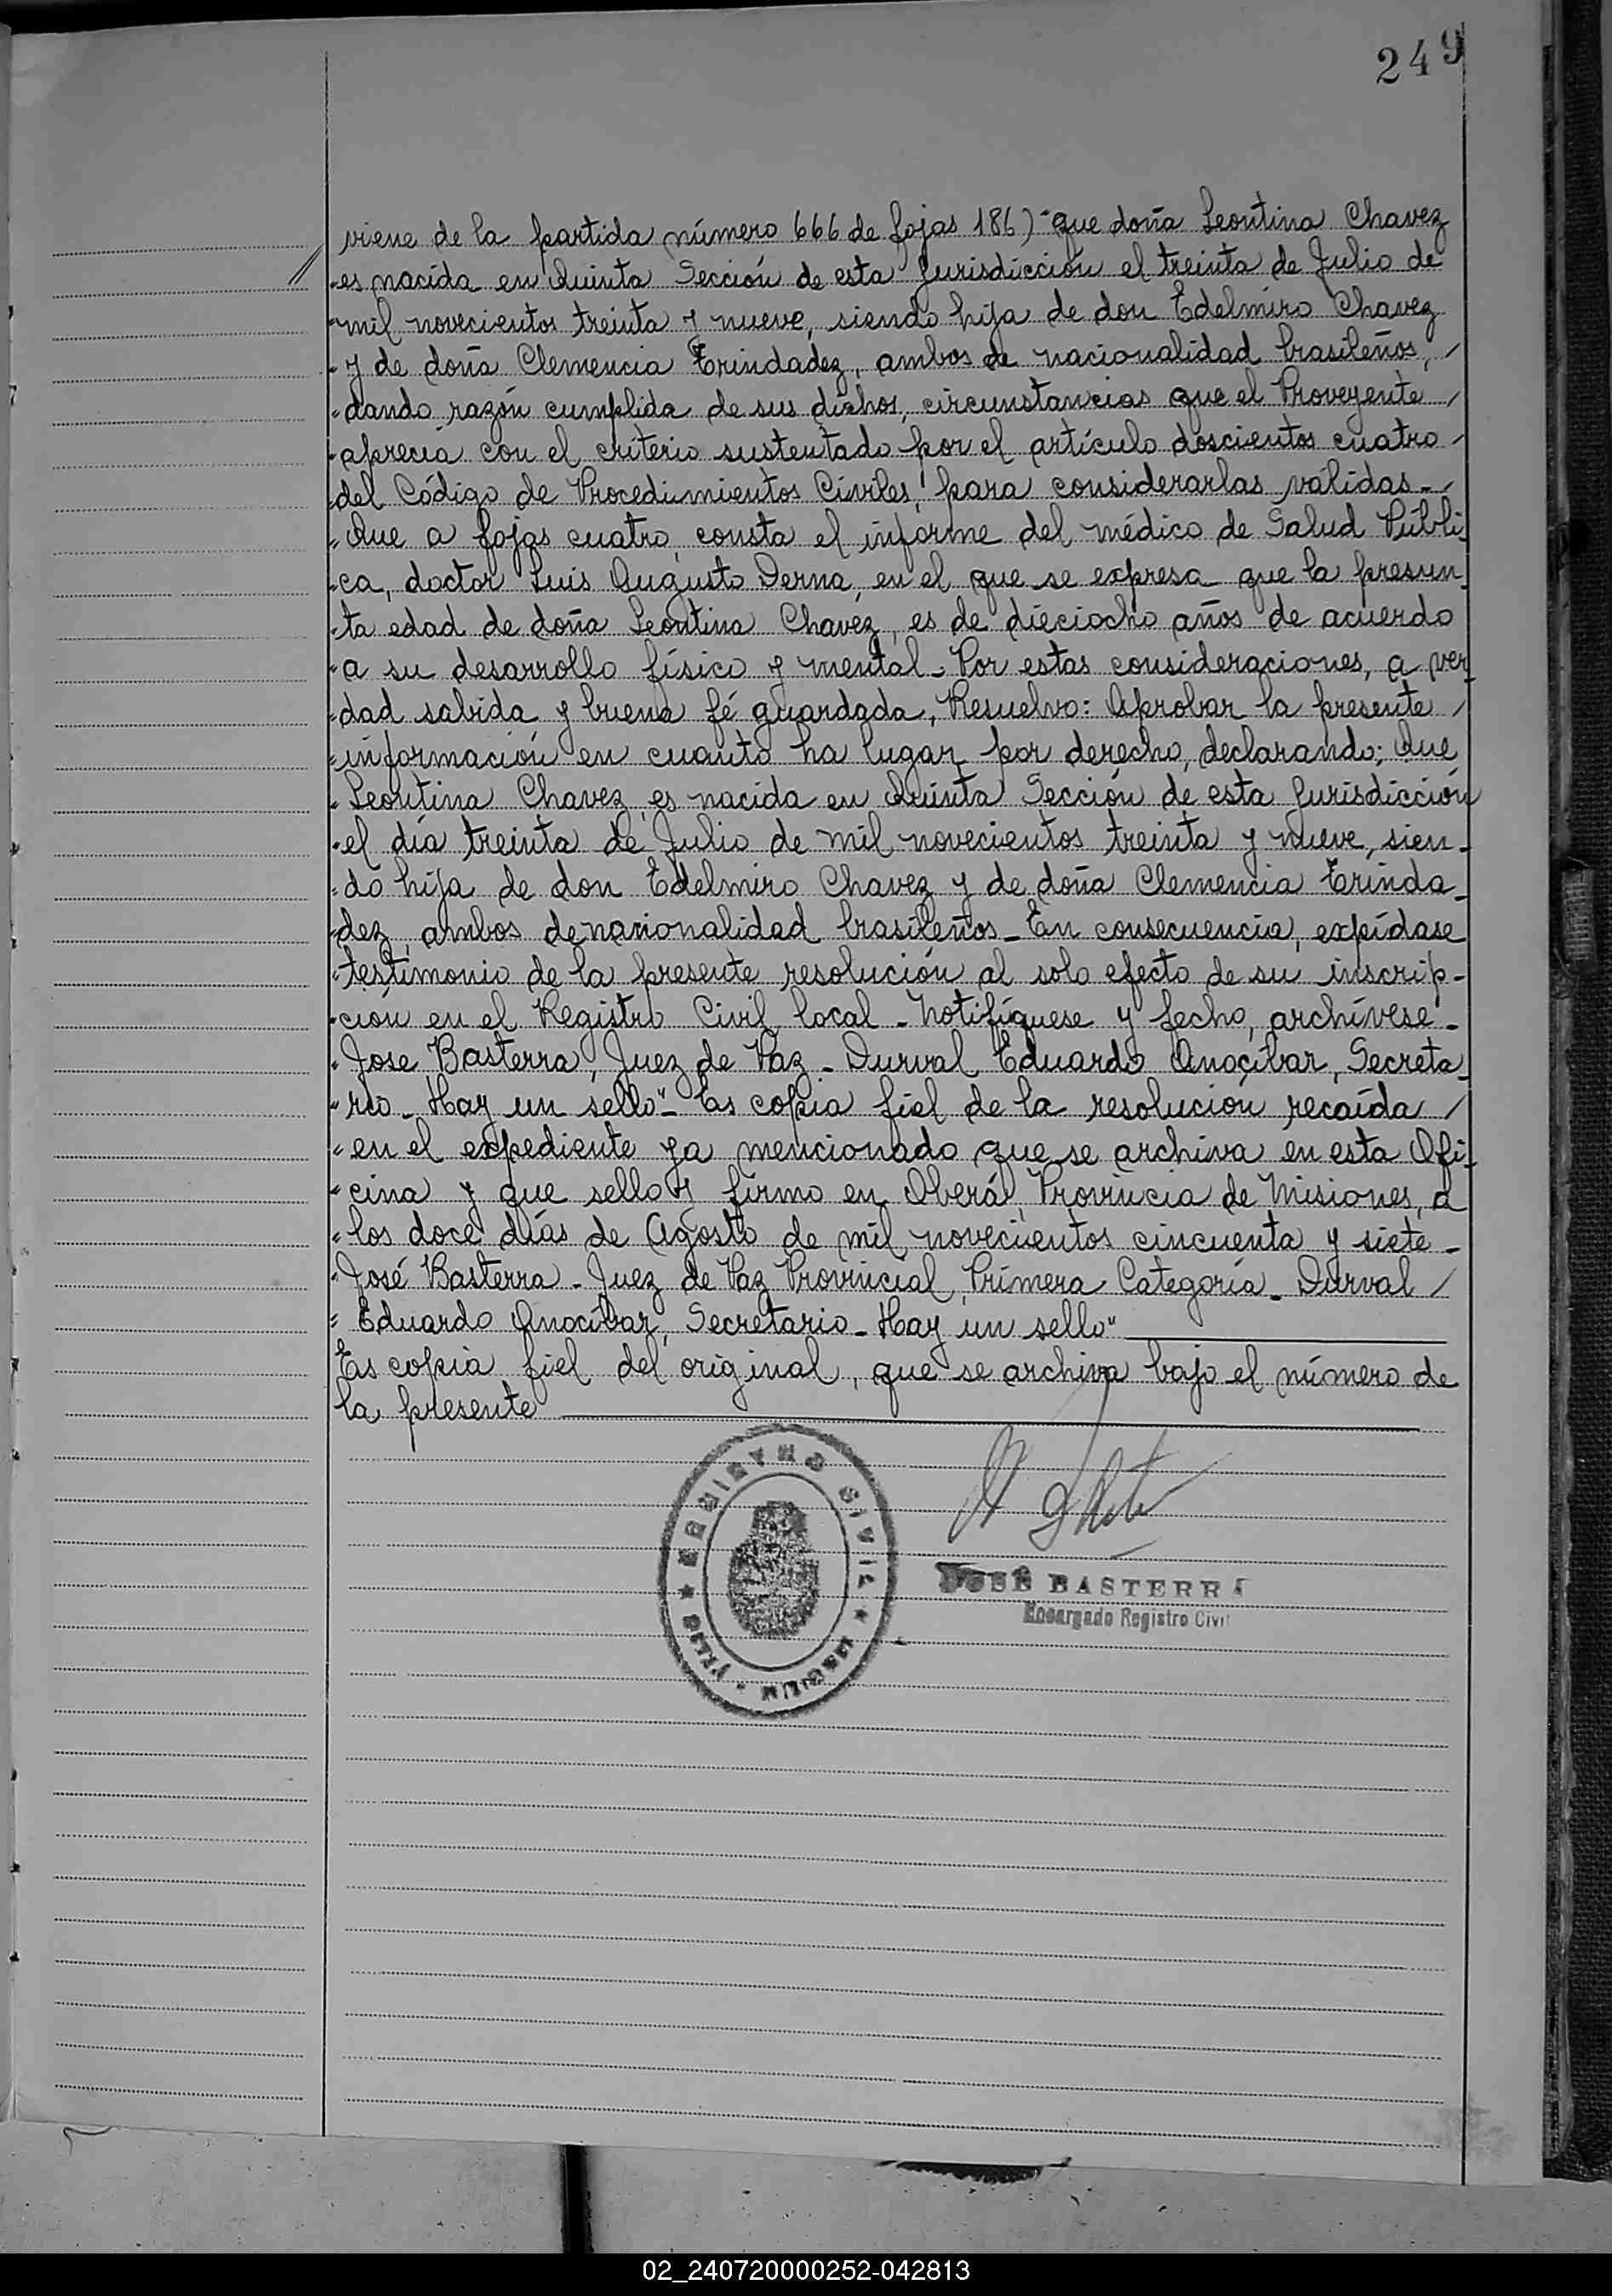 249
viene de la partida número 666 de fojas 186) "que doña Leontina Chavez
"es nacida en Quinta Sección de esta Jurisdicción el treinta de Julio de
"mil novecientos treinta y nueve, siendo hija de don Edelmiro Chavez
"y de doña Clemencia Trindadez, ambos de nacionalidad brasileños, /
"dando razón cumplida de sus dichos, circunstancias que el Proveyente /
"aprecia con el criterio sustentado por el artículo doscientos cuatro /
"del Código de Procedimientos Civiles, para considerarlas válidas- /
"Que a fojas cuatro, consta el informe del médico de Salud Públi-
"ca, doctor Luis Augusto Derna, en el que se expresa que la presun-
"ta edad de doña Leontina Chavez, es de dieciocho años de acuerdo
"a su desarrollo físico y mental- Por estas consideraciones, a ver-
"dad sabida y buena fé guardada, Resuelvo: Aprobar la presente /
"información en cuanto ha lugar por derecho, declarando: Que
"Leontina Chavez, es nacida en Quinta Sección de esta Jurisdicción
"el día treinta de Julio de mil novecientos treinta y nueve, sien-
"do hija de don Edelmiro Chavez y de doña Clemencia Trinda-
"dez, ambos de nacionalidad brasileños- En consecuencia, expídase
"testimonio de la presente resolución al solo efecto de su inscrip-
"ción en el Registro Civil local- Notifíquese y fecho, archívese-
"Jose Basterra, Juez de Paz- Durval Eduardo Anocíbar, Secreta-
"rio- Hay un sello"- Es copia fiel de la resolución recaída /
"en el expediente ya mencionado que se archiva en esta Ofi-
"cina y que sello y firmo en Oberá, Provincia de Misiones, a
"los doce días de Agosto de mil novecientos cincuenta y siete-
"José Basterra- Juez de Paz Provincial, Primera Categoría- Durval /
"Eduardo Anocíbar, Secretario- Hay un sello"
Es copia fiel del original, que se archiva bajo el número de
la presente
REGISTRO CIVIL
JOSÉ BASTERRA
Encargado Registro Civil
02_240720000252-042813